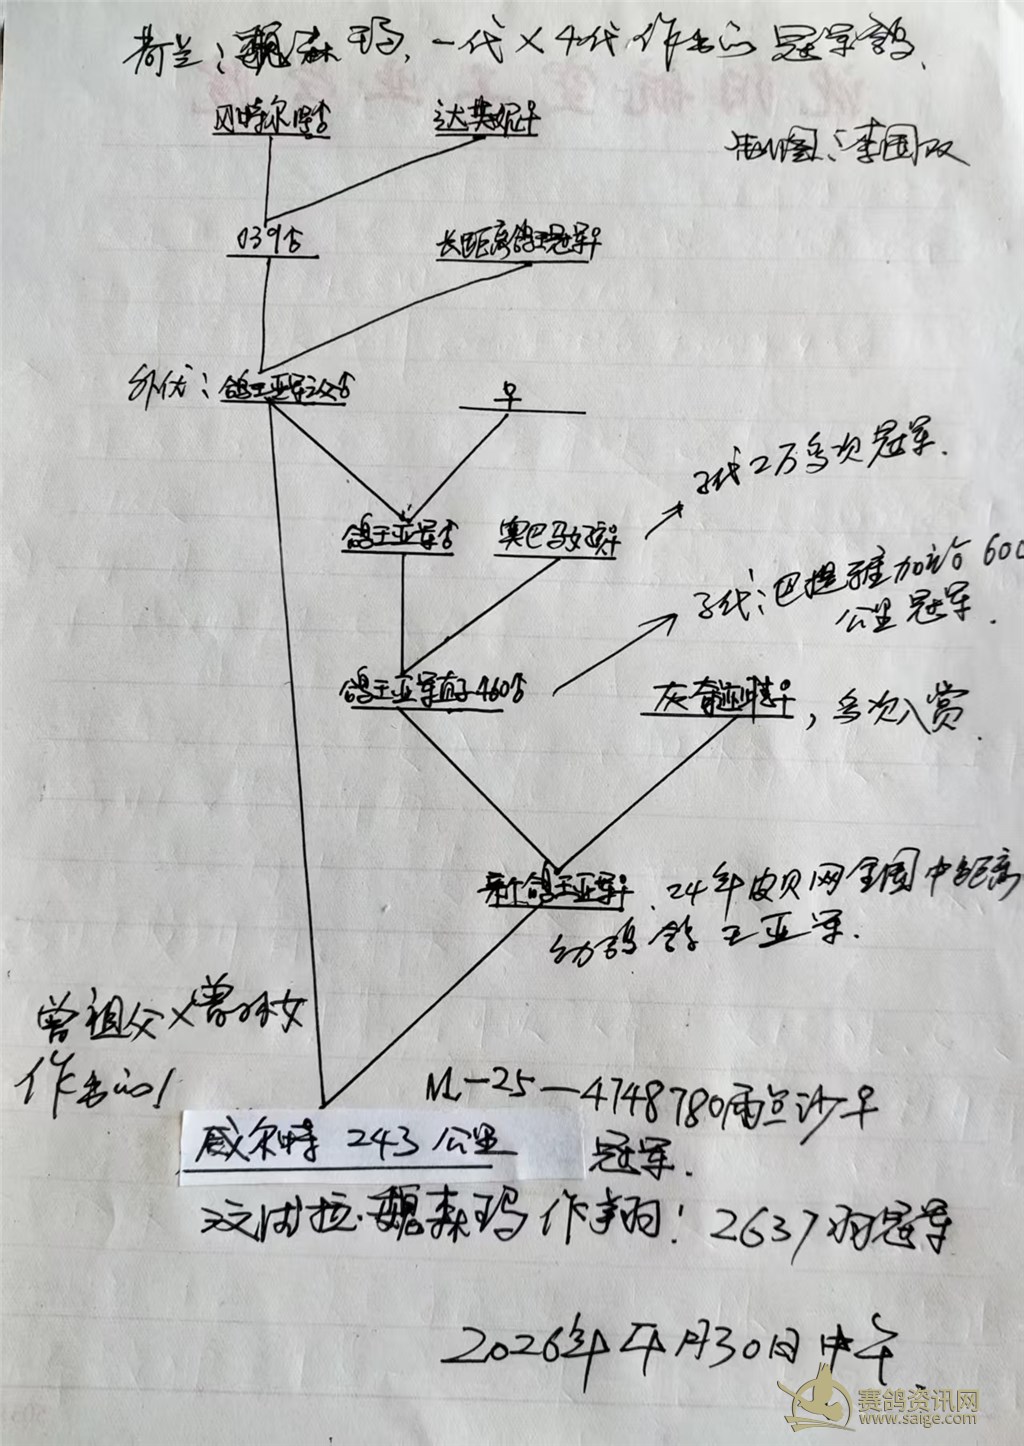 荷兰：魏森玛，一代×4代作出的冠军鸽．
达芙妮♀
制图：李国双
039♂
长距离鸽王冠军♀
外优：鸽王亚军之父♂
♀
子代2万多次冠军．
鸽王亚军♂
奥巴马女孩♀
子代：巴提雅加站600
公里冠军．
鸽王亚军直子460♂
灰♀，多次入赏．
新鸽王亚军♀．24年皮贝网全国中距离
幼鸽鸽王亚军．
曾祖父×曾孙女
作出的！
NL－25－4748780雨点沙♀
威尔特 243公里
冠军．
汶波拉·魏森玛作翔！2637羽冠军
2026年4月30日中午
赛鸽资讯网
www.saige.com